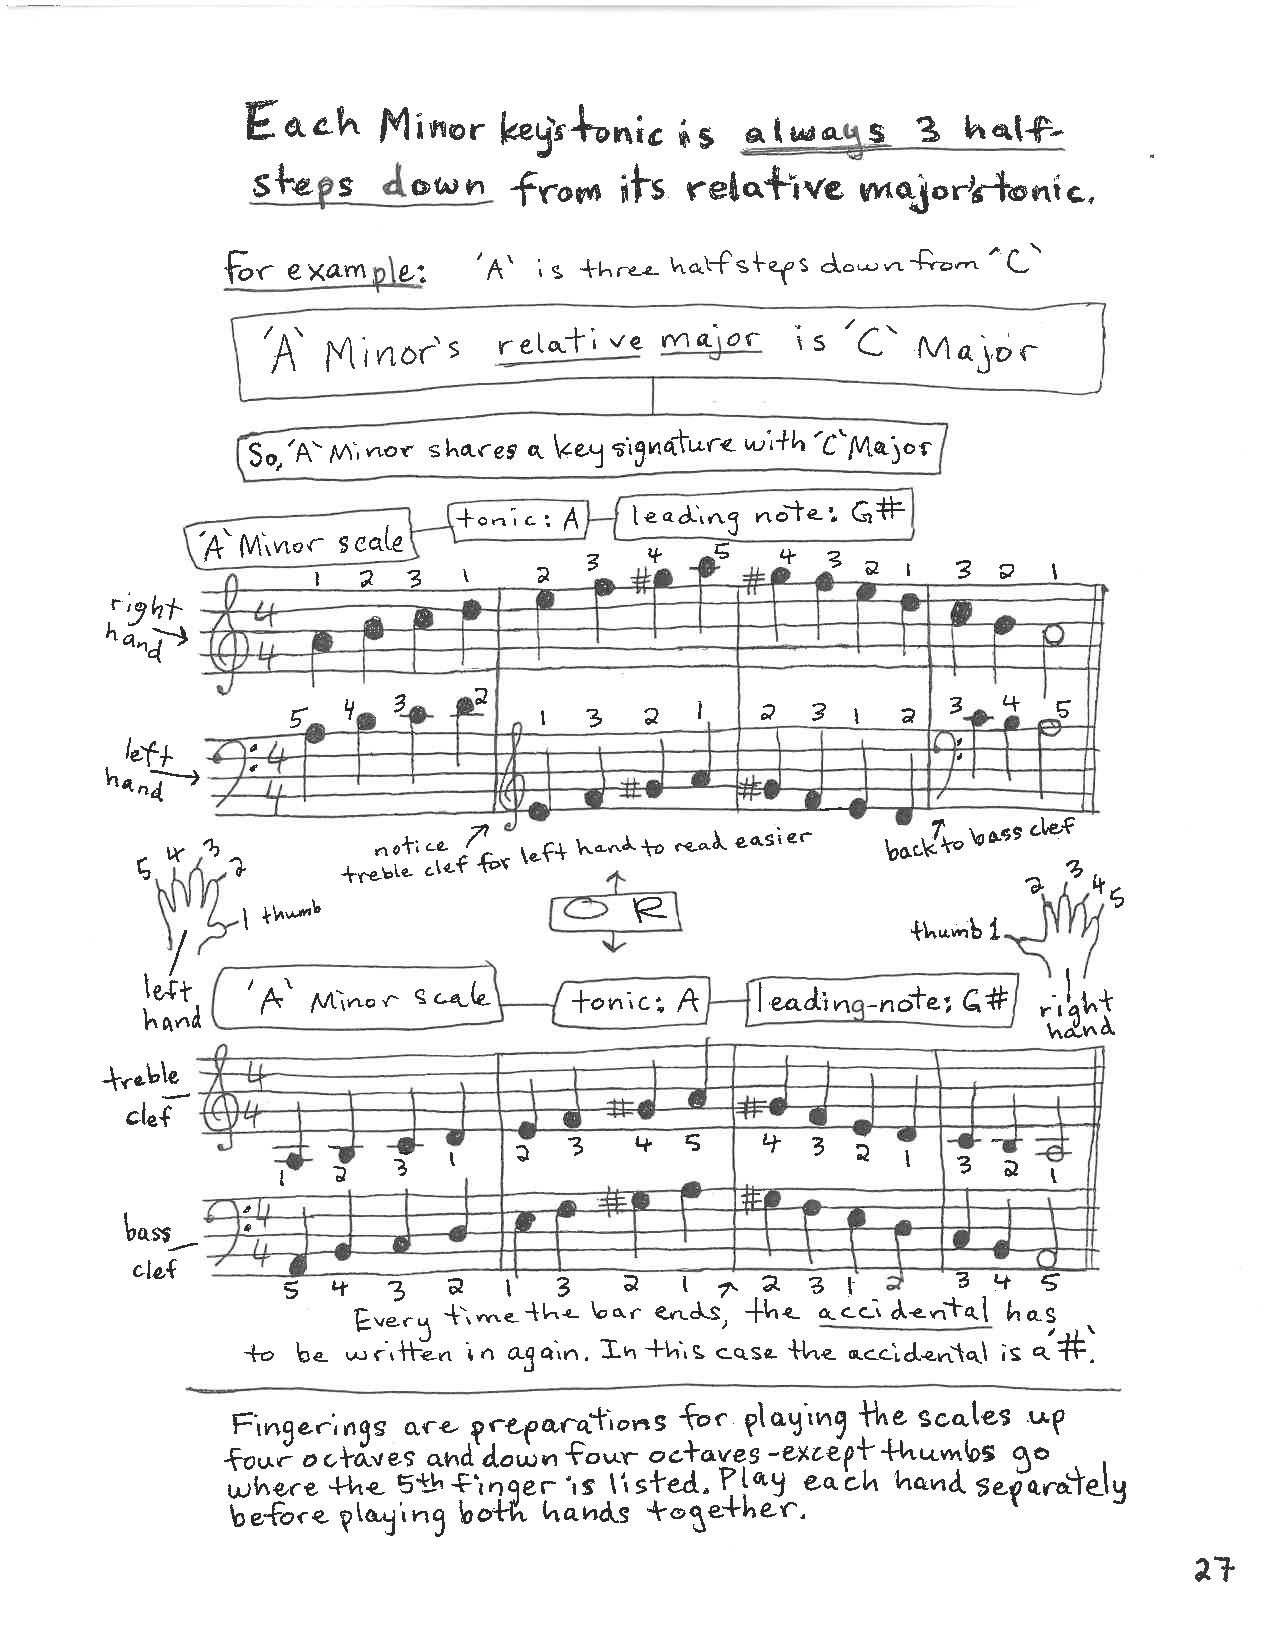 Each Minor key's tonic is always 3 half-
steps down from its relative major's tonic.
for example: 'A' is three half steps down from 'C'
'A' Minor's relative major is 'C' Major
So, 'A' Minor shares a key signature with 'C' Major
'A' Minor scale tonic: A leading note: G#
1 2 3 1 2 3 4 5 4 3 2 1 3 2 1
right
hand
4
4
# #
5 4 3 2 1 3 2 1 2 3 1 2 3 4 5
left
hand
4
4
# #
notice
treble clef for left hand to read easier
back to bass clef
5 4 3 2
1 thumb
left
hand
OR
2 3 4 5
thumb 1
right
hand
'A' Minor scale tonic: A leading-note: G#
treble
clef
4
4
# #
1 2 3 1 2 3 4 5 4 3 2 1 3 2 1
bass
clef
4
4
# #
5 4 3 2 1 3 2 1 2 3 1 2 3 4 5
Every time the bar ends, the accidental has
to be written in again. In this case the accidental is a '#'.
Fingerings are preparations for playing the scales up
four octaves and down four octaves - except thumbs go
where the 5th finger is listed. Play each hand separately
before playing both hands together.
27